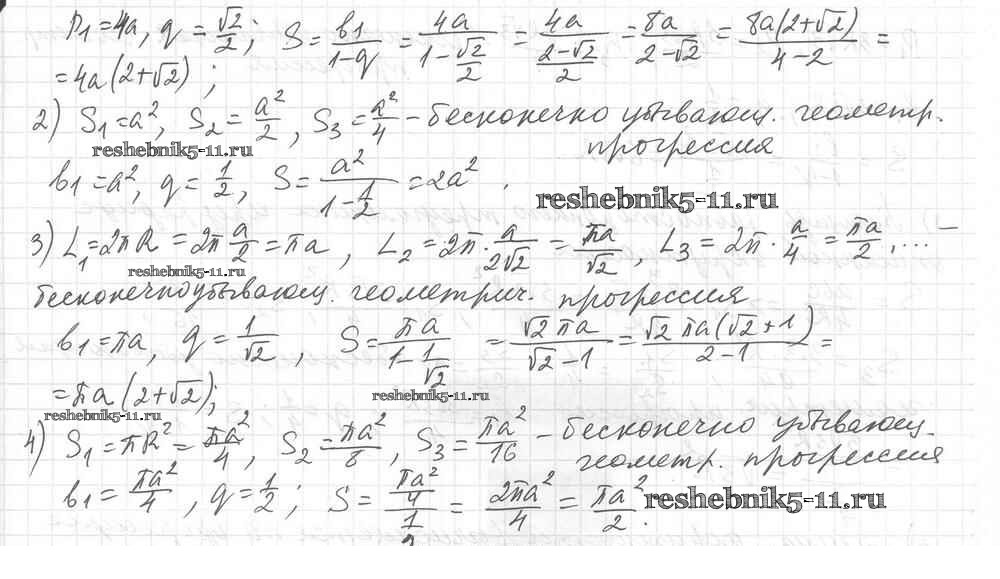 P₁ = 4a, q = √2/2; S = b₁/(1-q) = 4a/(1-√2/2) = 4a/((2-√2)/2) = 8a/(2-√2) = 8a(2+√2)/(4-2) =
= 4a(2+√2);
2) S₁ = a², S₂ = a²/2, S₃ = a²/4 – бесконечно убывающ. геометр.
прогрессия
reshebnik5-11.ru
b₁ = a², q = 1/2, S = a²/(1-1/2) = 2a².
reshebnik5-11.ru
3) L₁ = 2πR = 2π a/2 = πa, L₂ = 2π · a/(2√2) = πa/√2, L₃ = 2π · a/4 = πa/2, ... –
reshebnik5-11.ru
бесконечно убывающ. геометрич. прогрессия
b₁ = πa, q = 1/√2, S = πa/(1-1/√2) = √2πa/(√2-1) = √2πa(√2+1)/(2-1) =
reshebnik5-11.ru
= πa(2+√2);
reshebnik5-11.ru
4) S₁ = πR² = πa²/4, S₂ = πa²/8, S₃ = πa²/16 – бесконечно убывающ.
геометр. прогрессия
b₁ = πa²/4, q = 1/2; S = (πa²/4)/(1/2) = 2πa²/4 = πa²/2.
reshebnik5-11.ru